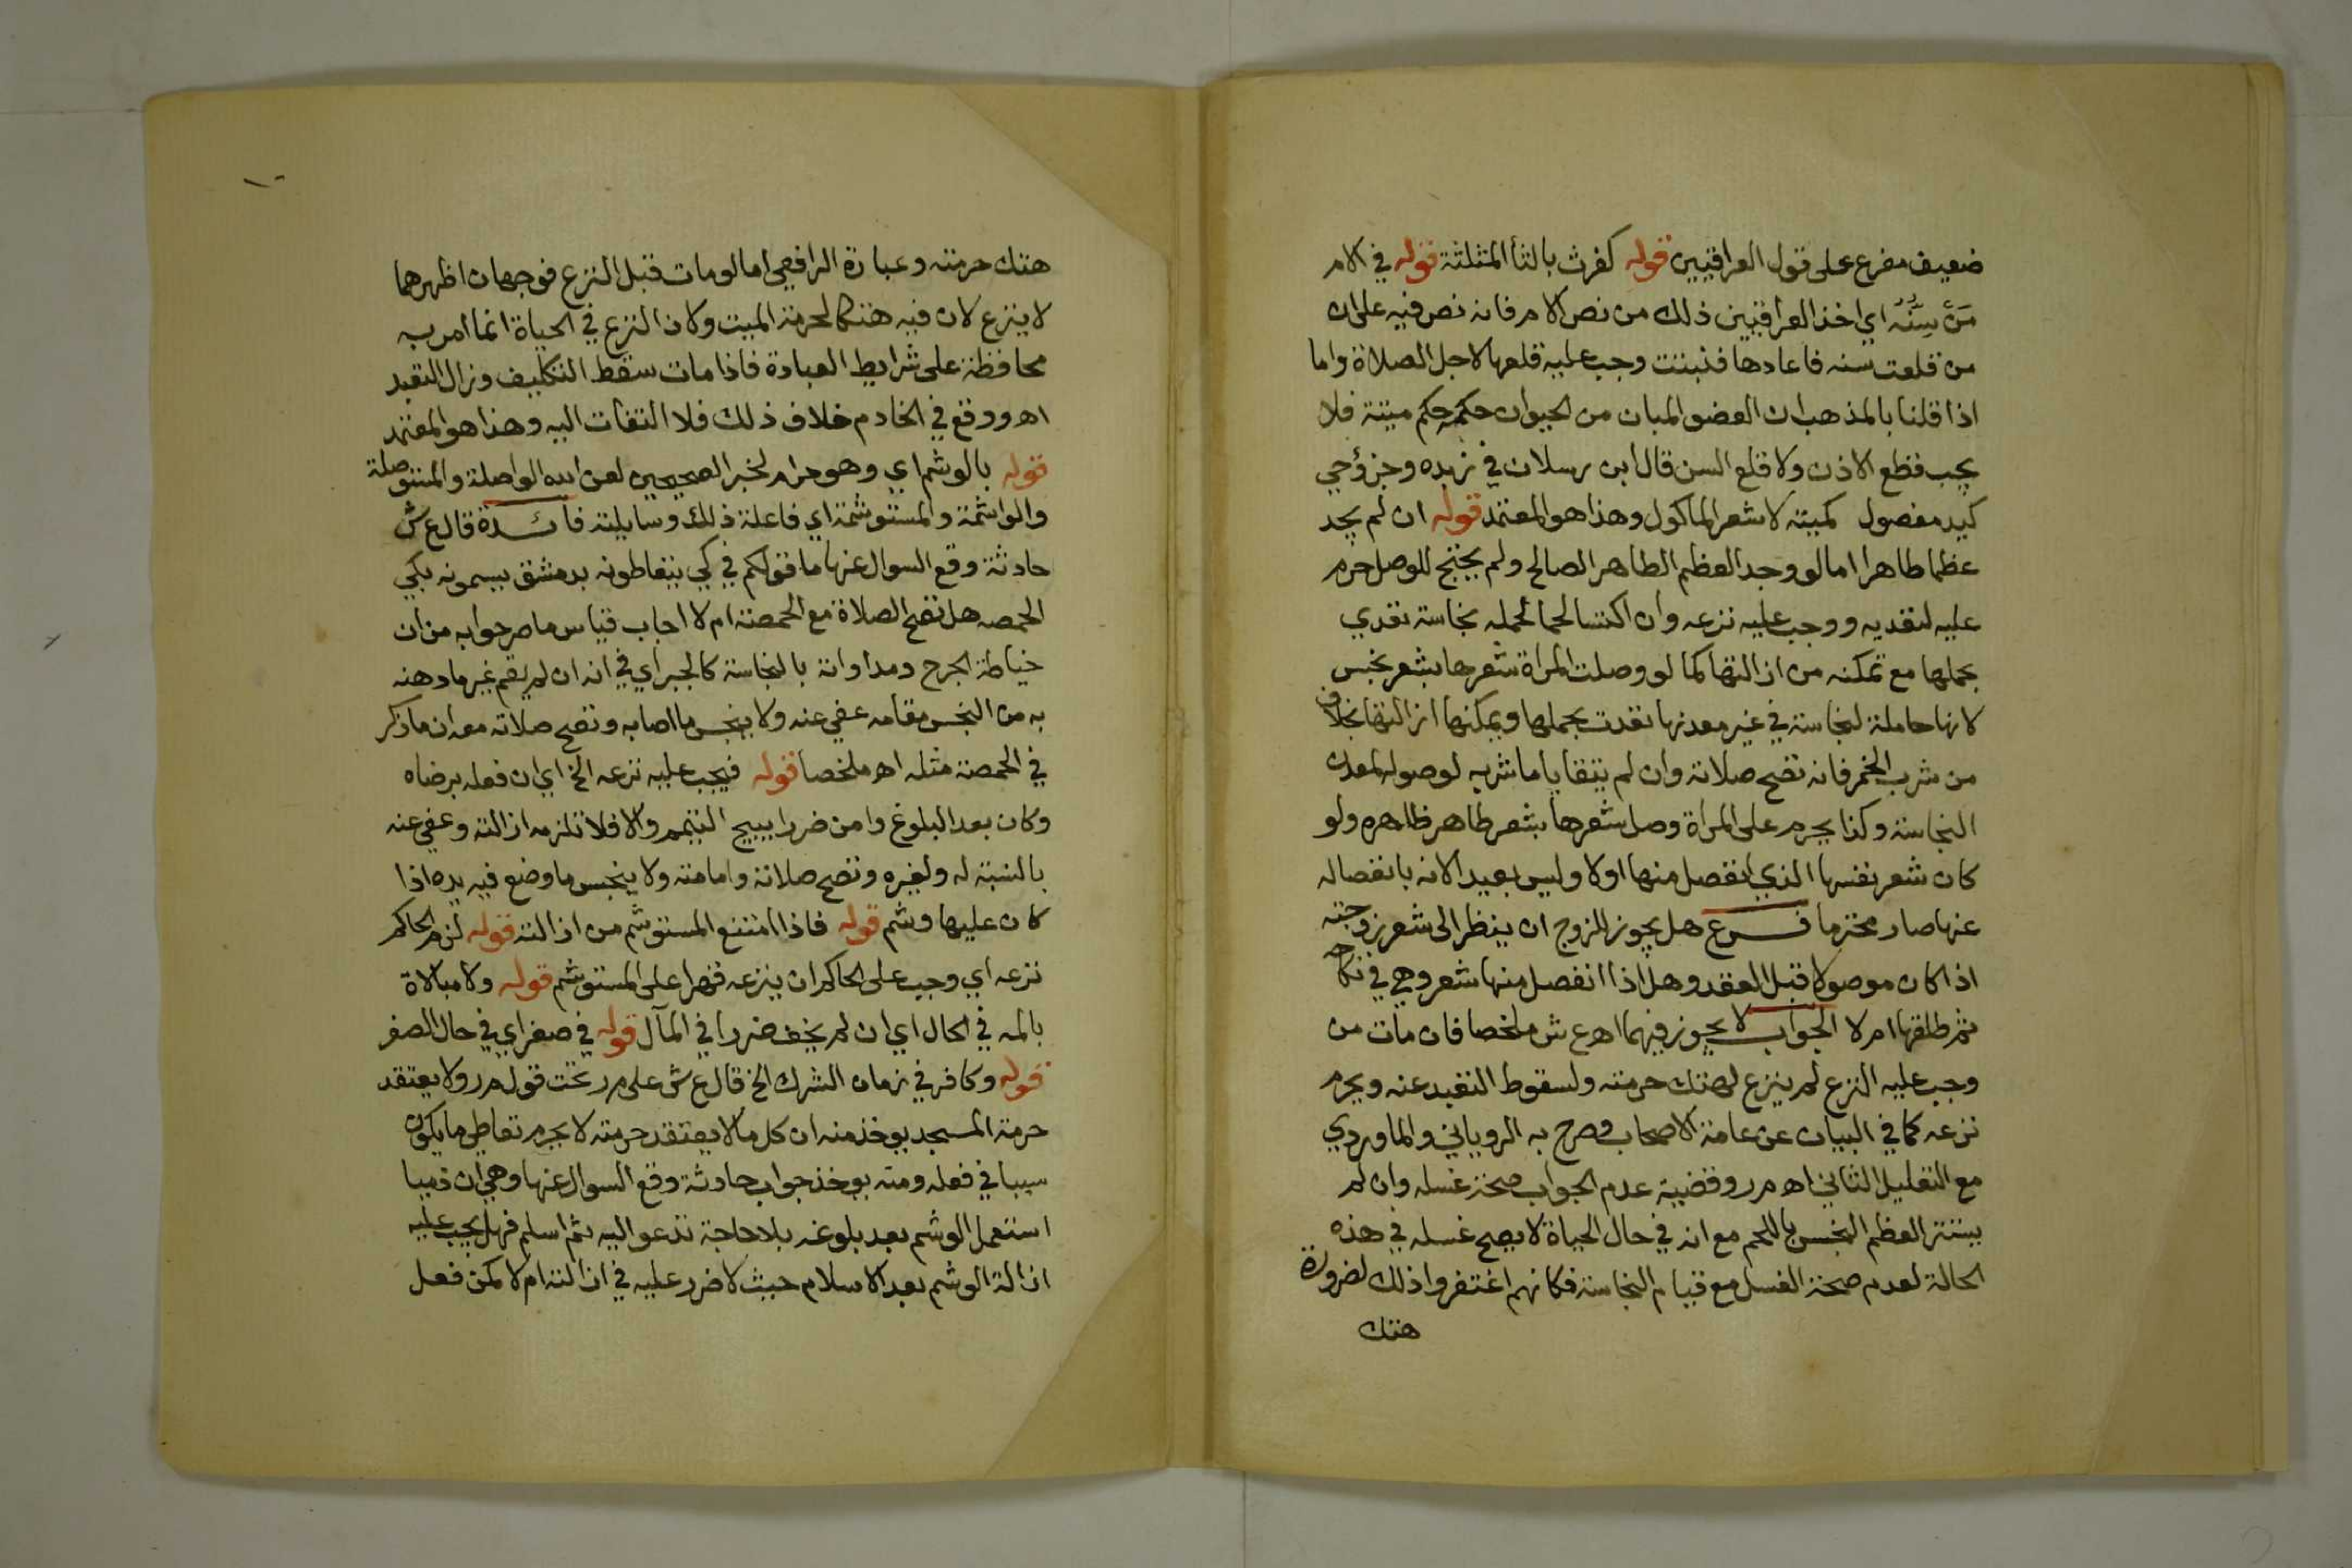 ضعيف مفرع على قول العراقيين قوله كفرث بالثأ المثلثة قوله في الام
مَن سِنُّه اي اخذ العراقيين ذلك من نص الام فانه نص فيه على ان
من قلعت سنه فاعادها فثبتت وجب عليه قلعها لاجل الصلاة واما
اذا قلنا بالمذهب ان العضو المبان من الحيوان حكمه حكم ميتة فلا
يجب قطع الاذن ولا قلع السن قال ابن رسلان في زبده وجزؤحي
كيد مفصول كميته لا شعر الماكول وهذا هو المعتمد قوله ان لم يجد
عظما طاهرا اما لو وجد العظم الطاهر الصالح ولم يحتج للوصل حرم
عليه لتعديه ووجب عليه نزعه وان اكتسا لحما لحمله نجاسة تعدي
بحملها مع تمكنه من ازالتها كما لو وصلت المراة شعرها بشعر نجس
لانها حاملة لنجاسة في غير معدنها تعدت بحملها ويمكنها ازالتها بخلاف
من شرب الخمر فانه تصح صلاته وان لم يتقايا ما شربه لوصوله لمعدن
النجاسة وكذا يحرم على المراة وصل شعرها بشعر طاهر ظاهره ولو
كان شعر نفسها الذي انفصل منها اولا وليس بعيد الانه بانفصاله
عنها صار محترما فرع هل يجوز للزوج ان ينظر الى شعر زوجته
اذا كان موصولا قبل العقد وهل اذا انفصل منها شعر وهي في نكاحه
ثم طلقها ام لا الجواب لا يجوز فيهما اهـ ع ش ملخصا فان مات من
وجب عليه النزع لم ينزع لهتك حرمته ولسقوط التعبد عنه ويحرم
نزعه كما في البيان عن عامة الاصحاب وصرح به الروياني والماوردي
مع التعليل الثاني اهـ م ر وقضية عدم الجواب صحة غسله وان لم
يستتر العظم النجس باللحم مع انه في حال الحياة لا يصح غسله في هذه
الحالة لعدم صحة الغسل مع قيام النجاسة فكانهم اغتفروا ذلك لضرورة
هتك
هتك حرمته وعبارة الرافعي اما لو مات قبل النزع فوجهان اظهرهما
لا ينزع لان فيه هتكا لحرمة الميت ولان النزع في الحياة انما امر به
محافظة على شرايط العبادة فاذا مات سقط التكليف وزال التعبد
اهـ ووقع في الخادم خلاف ذلك فلا التفات اليه وهذا هو المعتمد
قوله بالوشم اي وهو حرام لخبر الصحيحين لعن الله الواصلة والمستوصلة
والواشمة والمستوشمة اي فاعلة ذلك وسايلته فائدة قال ع ش
حادثة وقع السوال عنها ما قولكم في كي يتعاطونه بدمشق يسمونه بكي
الحمصه هل تصح الصلاة مع الحمصة ام لا اجاب قياس ما صر جوابه من ان
خياطة الجرح ومداواته بالنجاسة كالجبر اي في انه ان لم يقم غير ما دهنه
به من النجس مقامه عفي عنه ولا ينجس ما اصابه وتصح صلاته معه ان ما ذكر
في الحمصة مثله اهـ ملخصا قوله فيجب عليه نزعه الخ اي ان فعله برضاه
وكان بعد البلوغ وامن ضررا يبيح التيمم والا فلا تلزمه ازالته وعفي عنه
بالنسبة له ولغيره وتصح صلاته وامامته ولا ينجس ما وضع فيه يده اذا
كان عليها وشم قوله فاذا امتنع المستوشم من ازالته قوله لزم الحاكم
نزعه اي وجب على الحاكم ان ينزعه قهرا على المستوشم قوله ولا مبالاة
بالمه في الحال اي ان لم يخف ضررا في المآل قوله في صغر اي في حال الصغر
قوله وكافر في زمان الشرك الخ قال ع ش على م ر تحت قول م ر ولا يعتقد
حرمة المسجد يوخذ منه ان كل ما لا يعتقد حرمته لا يحرم تعاطي ما يكون
سببا في فعله ومنه يوخذ جواب حادثة وقع السوال عنها وهي ان ذميا
استعمل الوشم بعد بلوغه بلا حاجة تدعو اليه ثم اسلم فهل يجب عليه
ازالة الوشم بعد الاسلام حيث لا ضرر عليه في ازالته ام لا كمن فعل